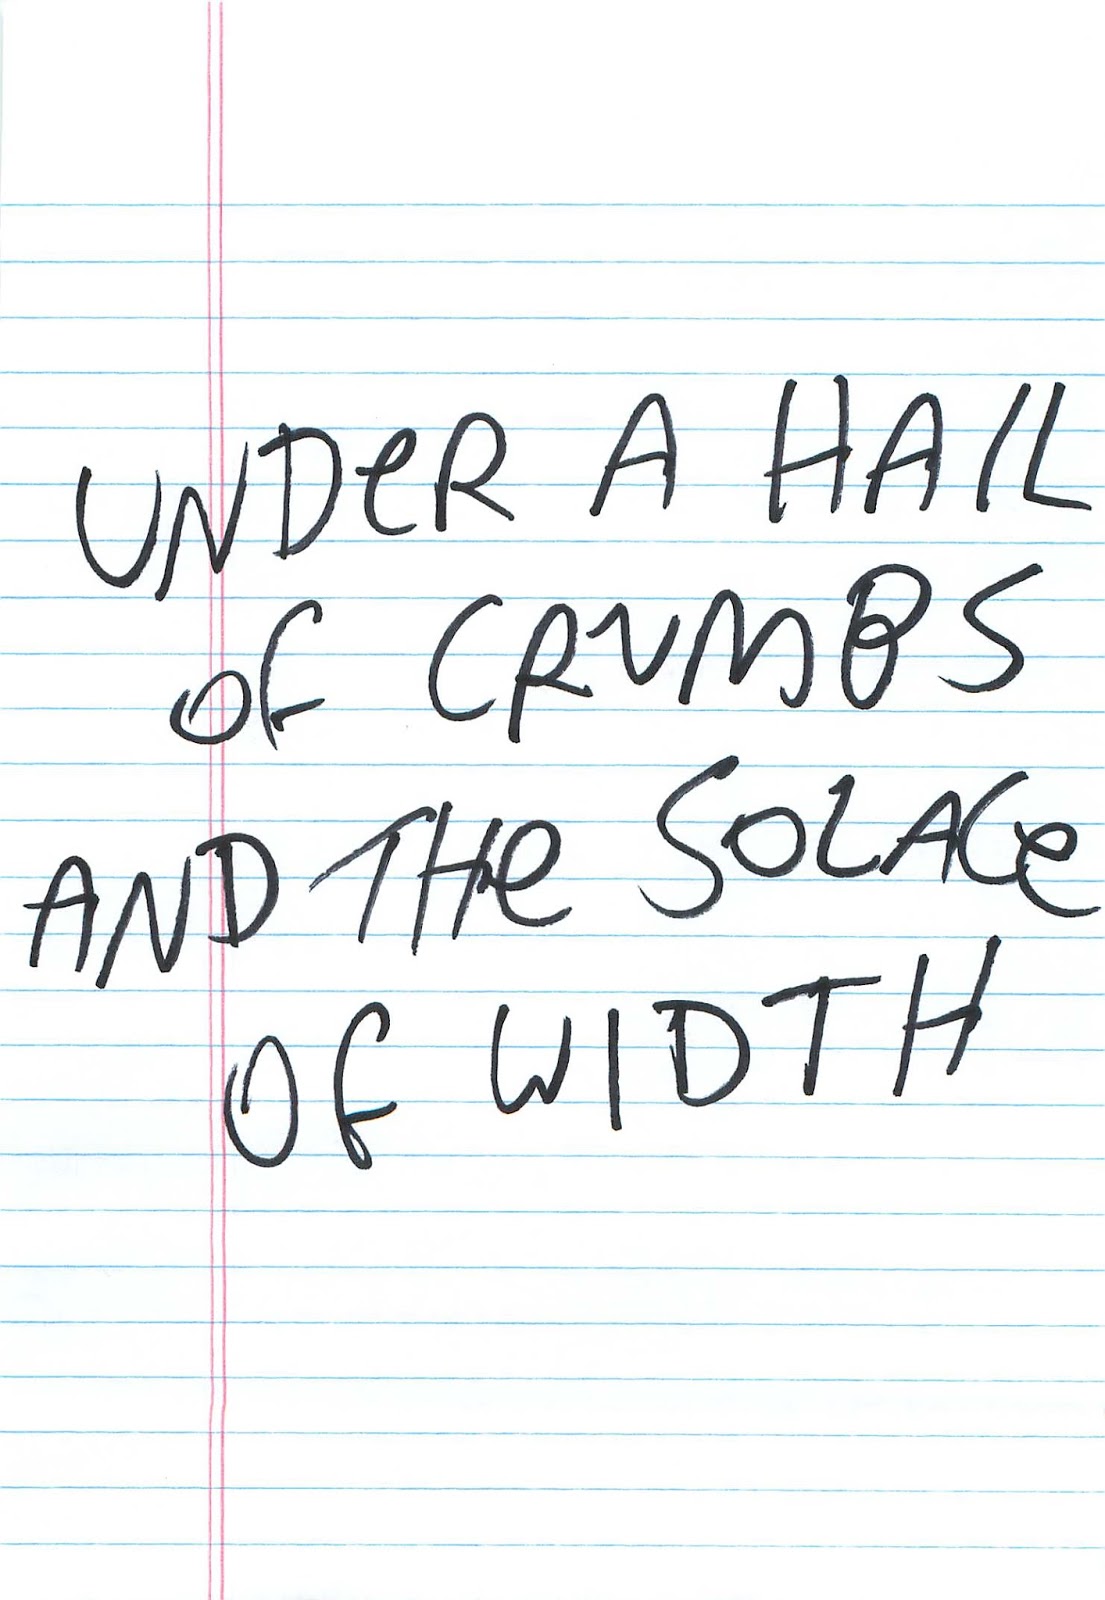 UNDeR A HAIL
OF CRUMBS
AND THe SOLACe
OF WIDTH